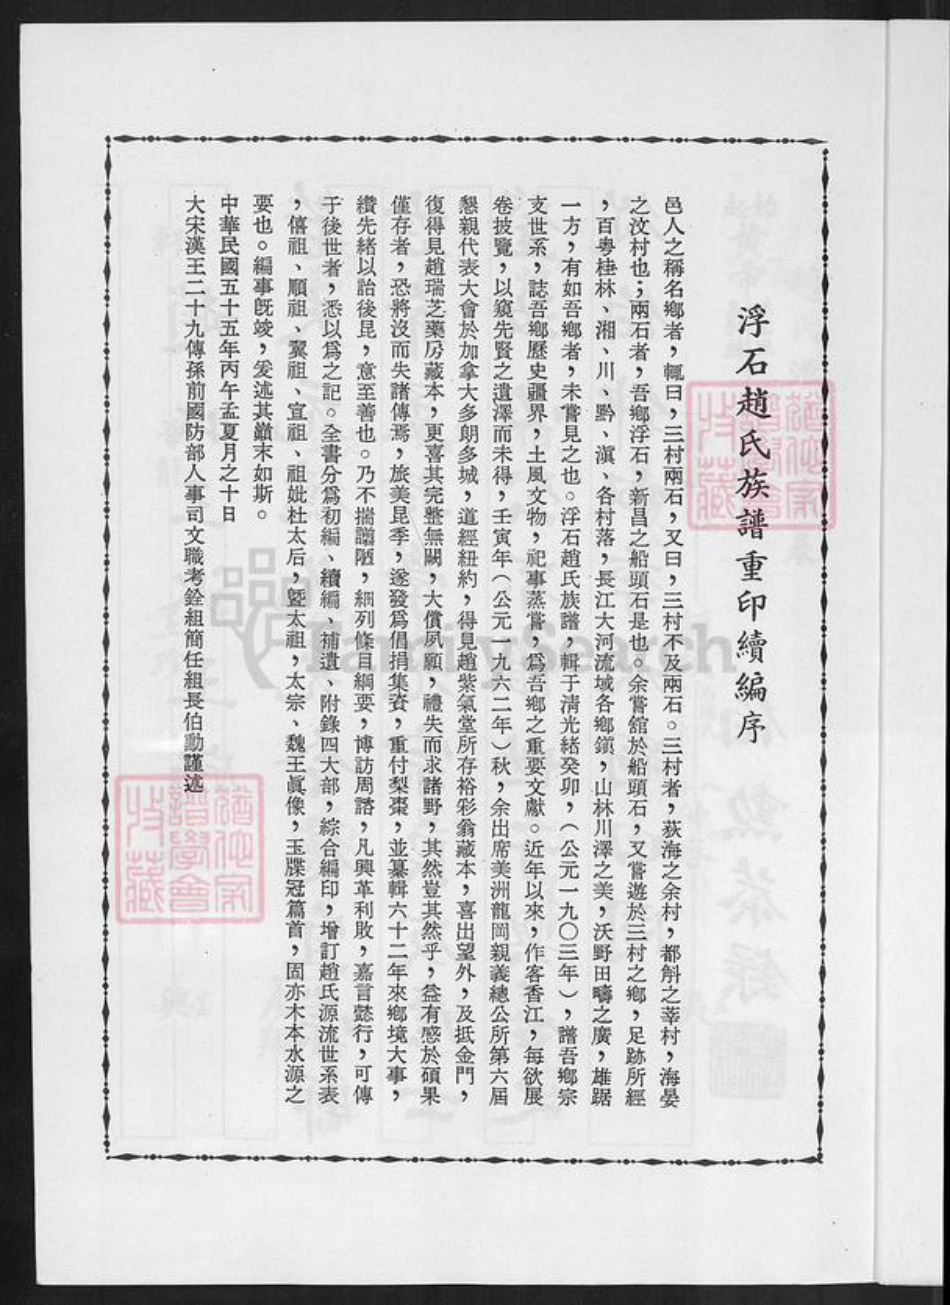 浮石趙氏族譜重印續編序
邑人之稱名鄉者，輒曰，三村兩石，又曰，三村不及兩石。三村者，荻海之余村，都斛之莘村，海晏
之汶村也；兩石者，吾鄉浮石，新昌之船頭石是也。余嘗舘於船頭石，又嘗遊於三村之鄉，足跡所經
，百粵桂林、湘、川、黔、滇、各村落，長江大河流域各鄉鎮，山林川澤之美，沃野田疇之廣，雄踞
一方，有如吾鄉者，未嘗見之也。浮石趙氏族譜，輯于清光緒癸卯，（公元一九〇三年），譜吾鄉宗
支世系，誌吾鄉歷史疆界，土風文物，祀事蒸嘗，爲吾鄉之重要文獻。近年以來，作客香江，每欲展
卷披覽，以窺先賢之遺澤而未得，壬寅年（公元一九六二年）秋，余出席美洲龍岡親義總公所第六屆
懇親代表大會於加拿大多朗多城，道經紐約，得見趙紫氣堂所存裕彩翁藏本，喜出望外，及抵金門，
復得見趙瑞芝藥房藏本，更喜其完整無闕，大償夙願，禮失而求諸野，其然豈其然乎，益有感於碩果
僅存者，恐將沒而失諸傳焉，旅美昆季，遂發爲倡捐集資，重付梨棗，並纂輯六十二年來鄉境大事，
纘先緒以詒後昆，意至善也。乃不揣譾陋，綑列條目綱要，博訪周諮，凡興革利敗，嘉言懿行，可傳
于後世者，悉以爲之記。全書分爲初編、續編、補遺、附錄四大部，綜合編印，增訂趙氏源流世系表
，僖祖、順祖、翼祖、宣祖、祖妣杜太后，曁太祖，太宗、魏王眞像，玉牒冠篇首，固亦木本水源之
要也。編事旣竣，爰述其巓末如斯。
中華民國五十五年丙午孟夏月之十日
大宋漢王二十九傳孫前國防部人事司文職考銓組簡任組長伯勳謹述
FamilySearch